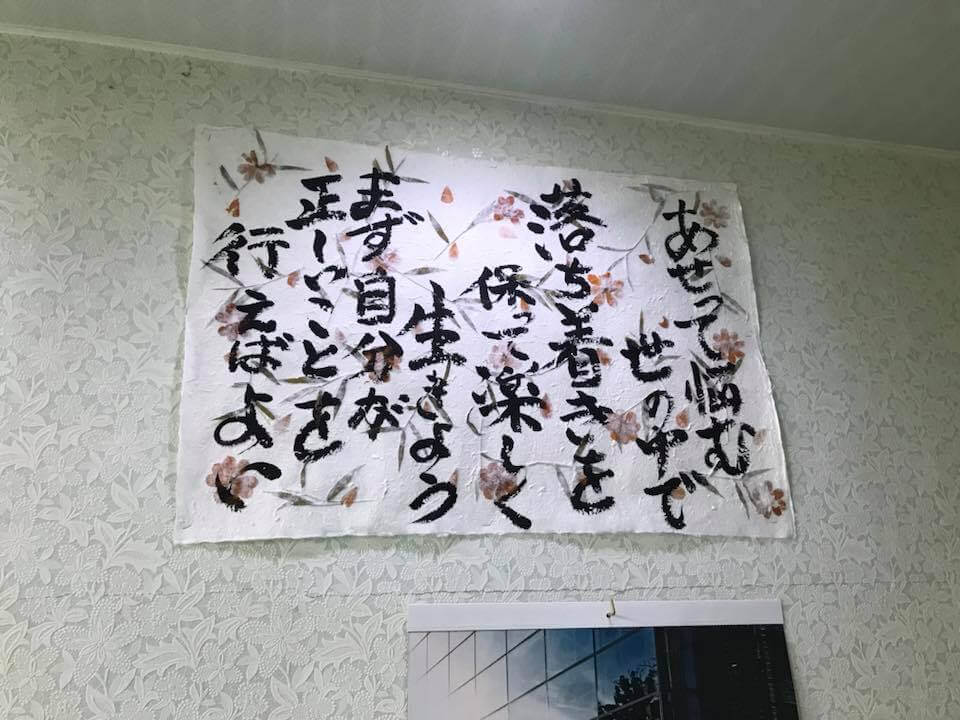 あせって悩む
世の中で
落ち着きを
保って楽しく
生きよう
まず自分が
正しいことを
行えばよい